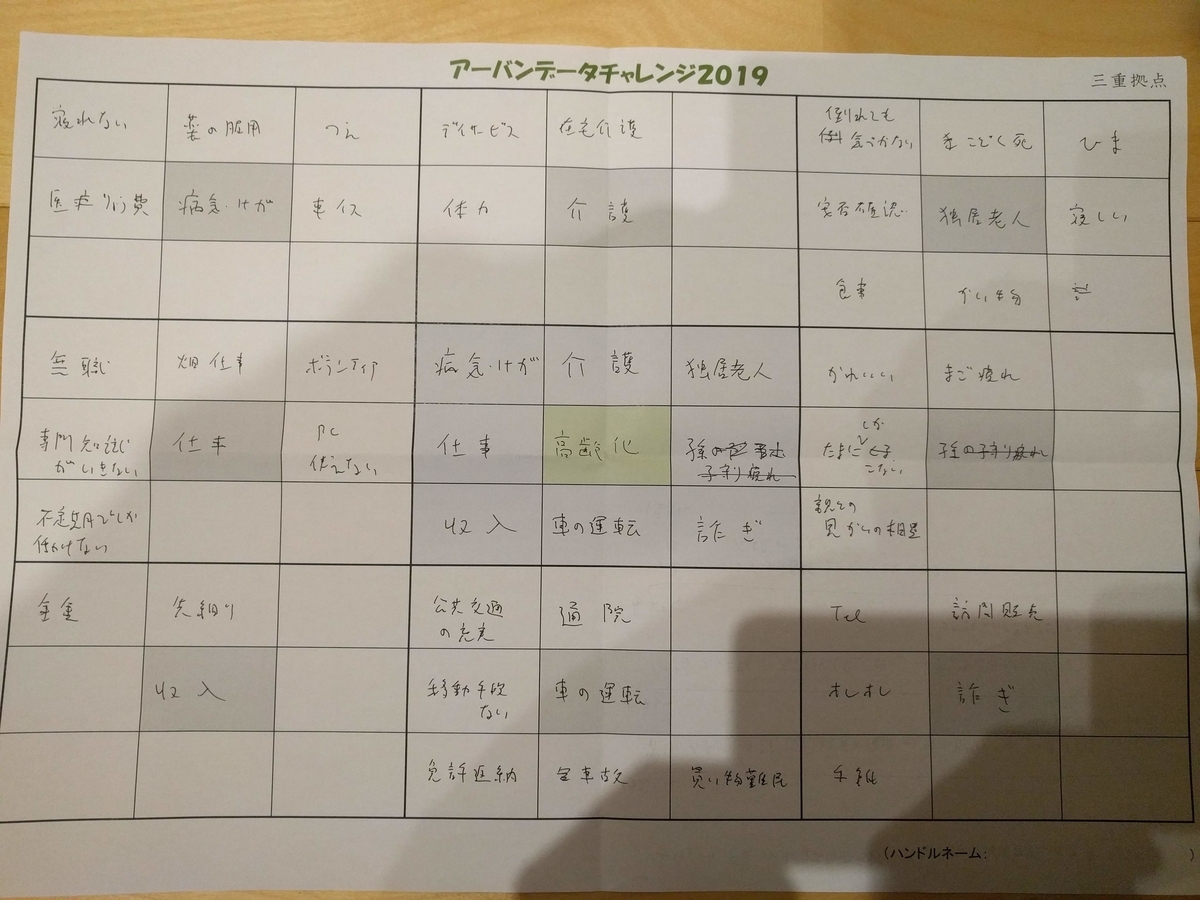 アーバンデータチャレンジ2019
三重拠点
寝れない 薬の服用 つえ デイサービス 在宅介護 倒れても こどく死 ひま
気づかない
医療費 病気・けが 車イス 体力 介護 安否確認 独居老人 寂しい
食事
無職 畑仕事 ボランティア 病気・けが 介護 独居老人 かわいい まご疲れ
専門知識 仕事 PC 仕事 高齢化 孫の しか 孫の子守り疲れ
がいきない 使えない 子守り疲れ たまに こない
不定期でしか 収入 車の運転 詐ぎ 親との
働けない 見からの相違
年金 先細り 公共交通 通院 Tel 訪問販売
の充実
収入 移動手段 車の運転 オレオレ 詐ぎ
ない
免許返納 買い物難民 手紙
(ハンドルネーム: )